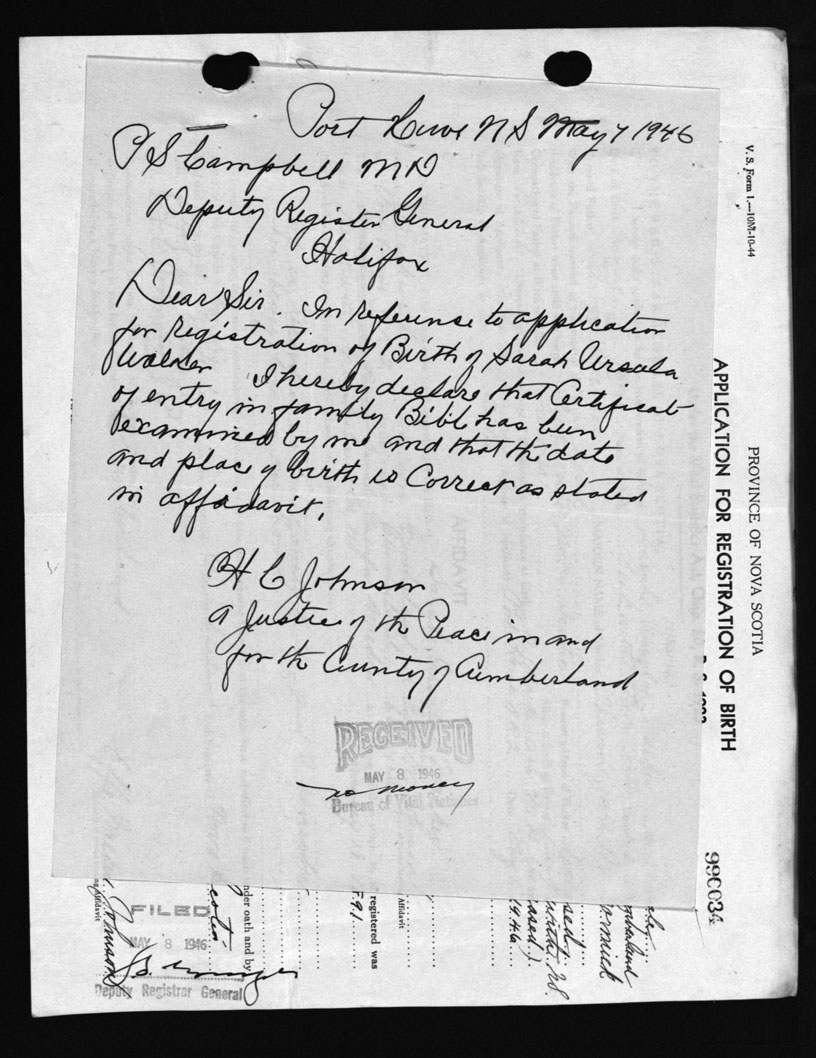 Port Howe N S May 7 1946
P S Campbell M D
Deputy Register General
Halifax
Dear Sir. In reference to application
for Registration of Birth of Sarah Ursula
I hereby declare that Certificat
of entry in family Bibl has been
examined by me and that the date
and place of birth is Correct as stated
in affidavit.
H C Johnson
a Justice of the Peace in and
for the County of Cumberland
RECEIVED
MAY 8 1946
no money
Bureau of Vital Statistics
V. S. Form 1.—10M-10-44
PROVINCE OF NOVA SCOTIA
APPLICATION FOR REGISTRATION OF BIRTH
990034
AFFIDAVIT
registered was
Affidavit
nder oath and by
FILED
MAY 8 1946
Deputy Registrar General